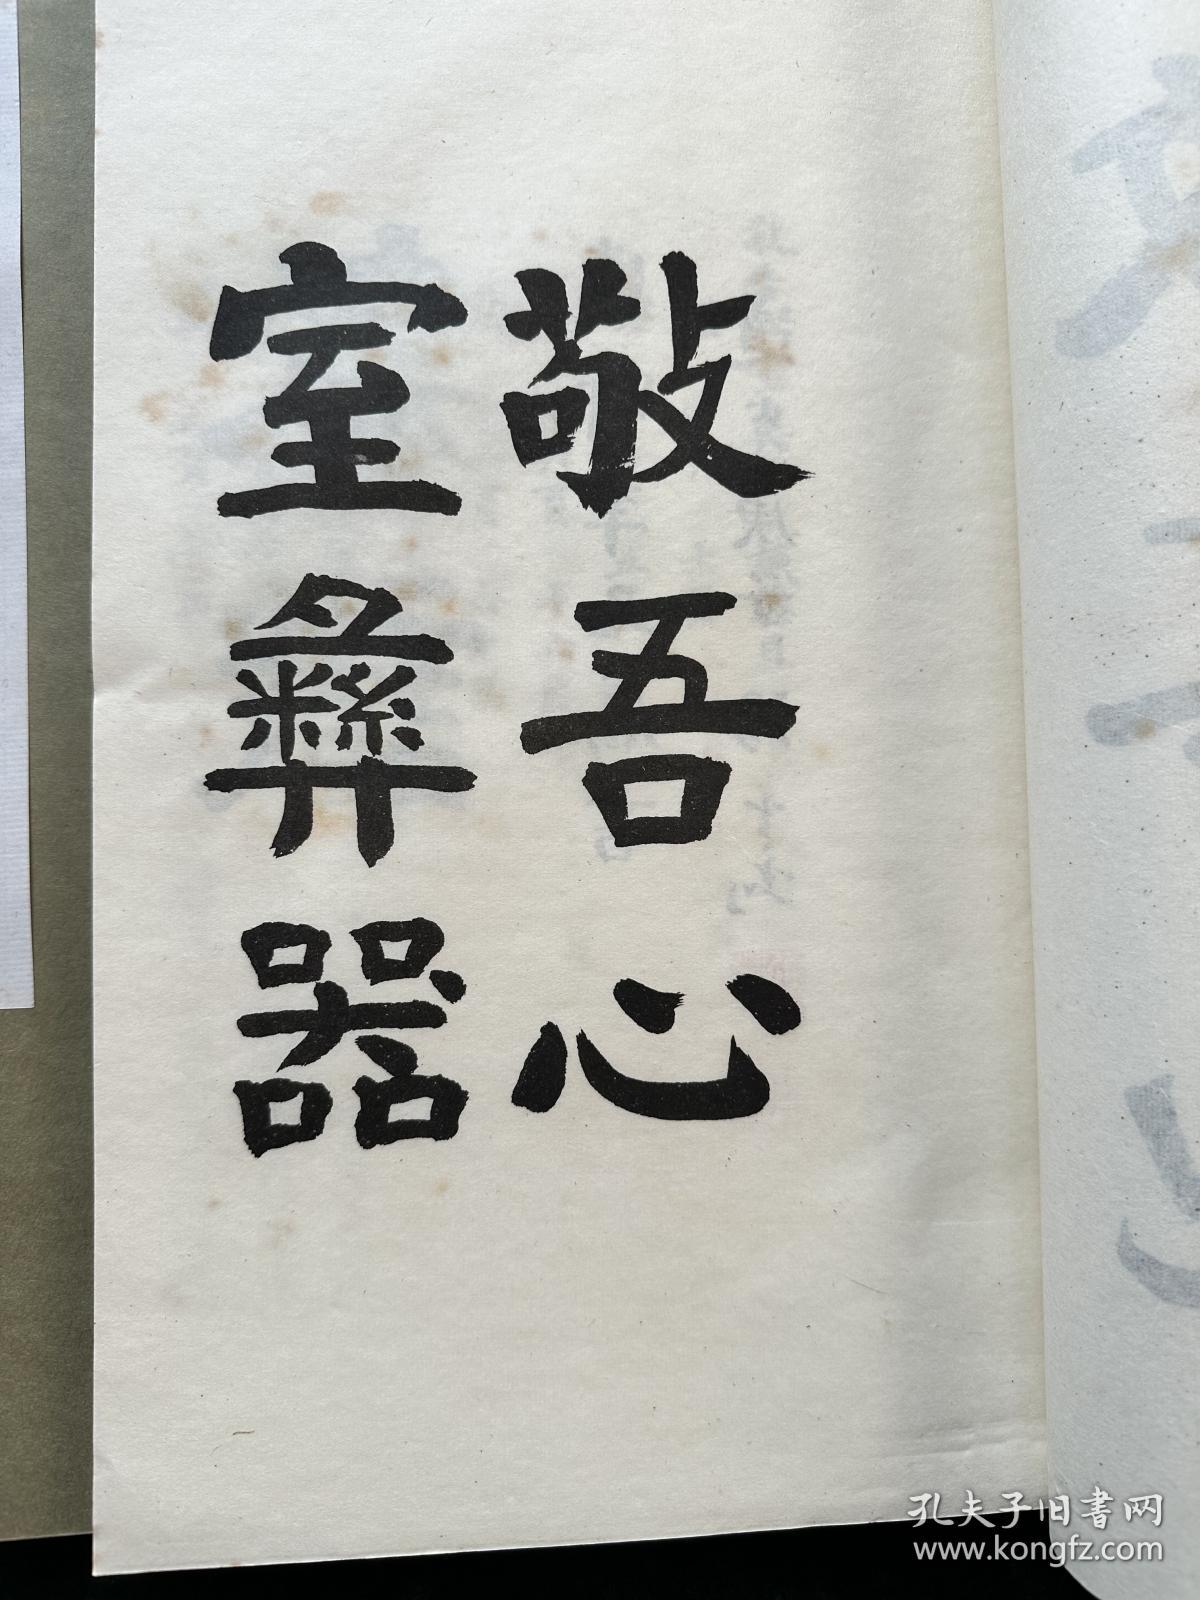 敬吾心
室彝器
孔夫子旧书网
www.kongfz.com